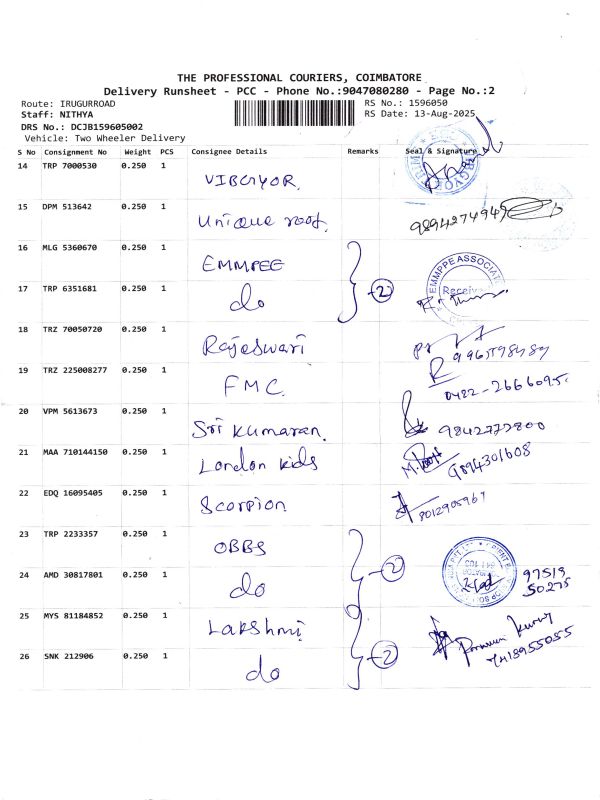 THE PROFESSIONAL COURIERS, COIMBATORE
Delivery Runsheet - PCC - Phone No.:9047080280 - Page No.:2
Route: IRUGURROAD
RS No.: 1596050
Staff: NITHYA
RS Date: 13-Aug-2025
DRS No.: DCJB159605002
Vehicle: Two Wheeler Delivery
S No Consignment No Weight PCS Consignee Details Remarks Seal & Signature
14 TRP 7000530 0.250 1
VIBGYOR
15 DPM 513642 0.250 1
Unique roof
9894274949
16 MLG 5360670 0.250 1
EMMPEE
EMMPPE ASSOCIATE
17 TRP 6351681 0.250 1
do
2
18 TRZ 70050720 0.250 1
Rajeswari
19 TRZ 225008277 0.250 1
FMC
0422-2666095
20 VPM 5613673 0.250 1
Sri Kumaran
9842772800
21 MAA 710144150 0.250 1
London kids
9894301608
22 EDQ 16095405 0.250 1
Scorpion
8012905967
23 TRP 2233357 0.250 1
OBBS
2
24 AMD 30817801 0.250 1
do
97519
50275
25 MYS 81184852 0.250 1
Lakshmi
26 SNK 212906 0.250 1
do
2
7418955055